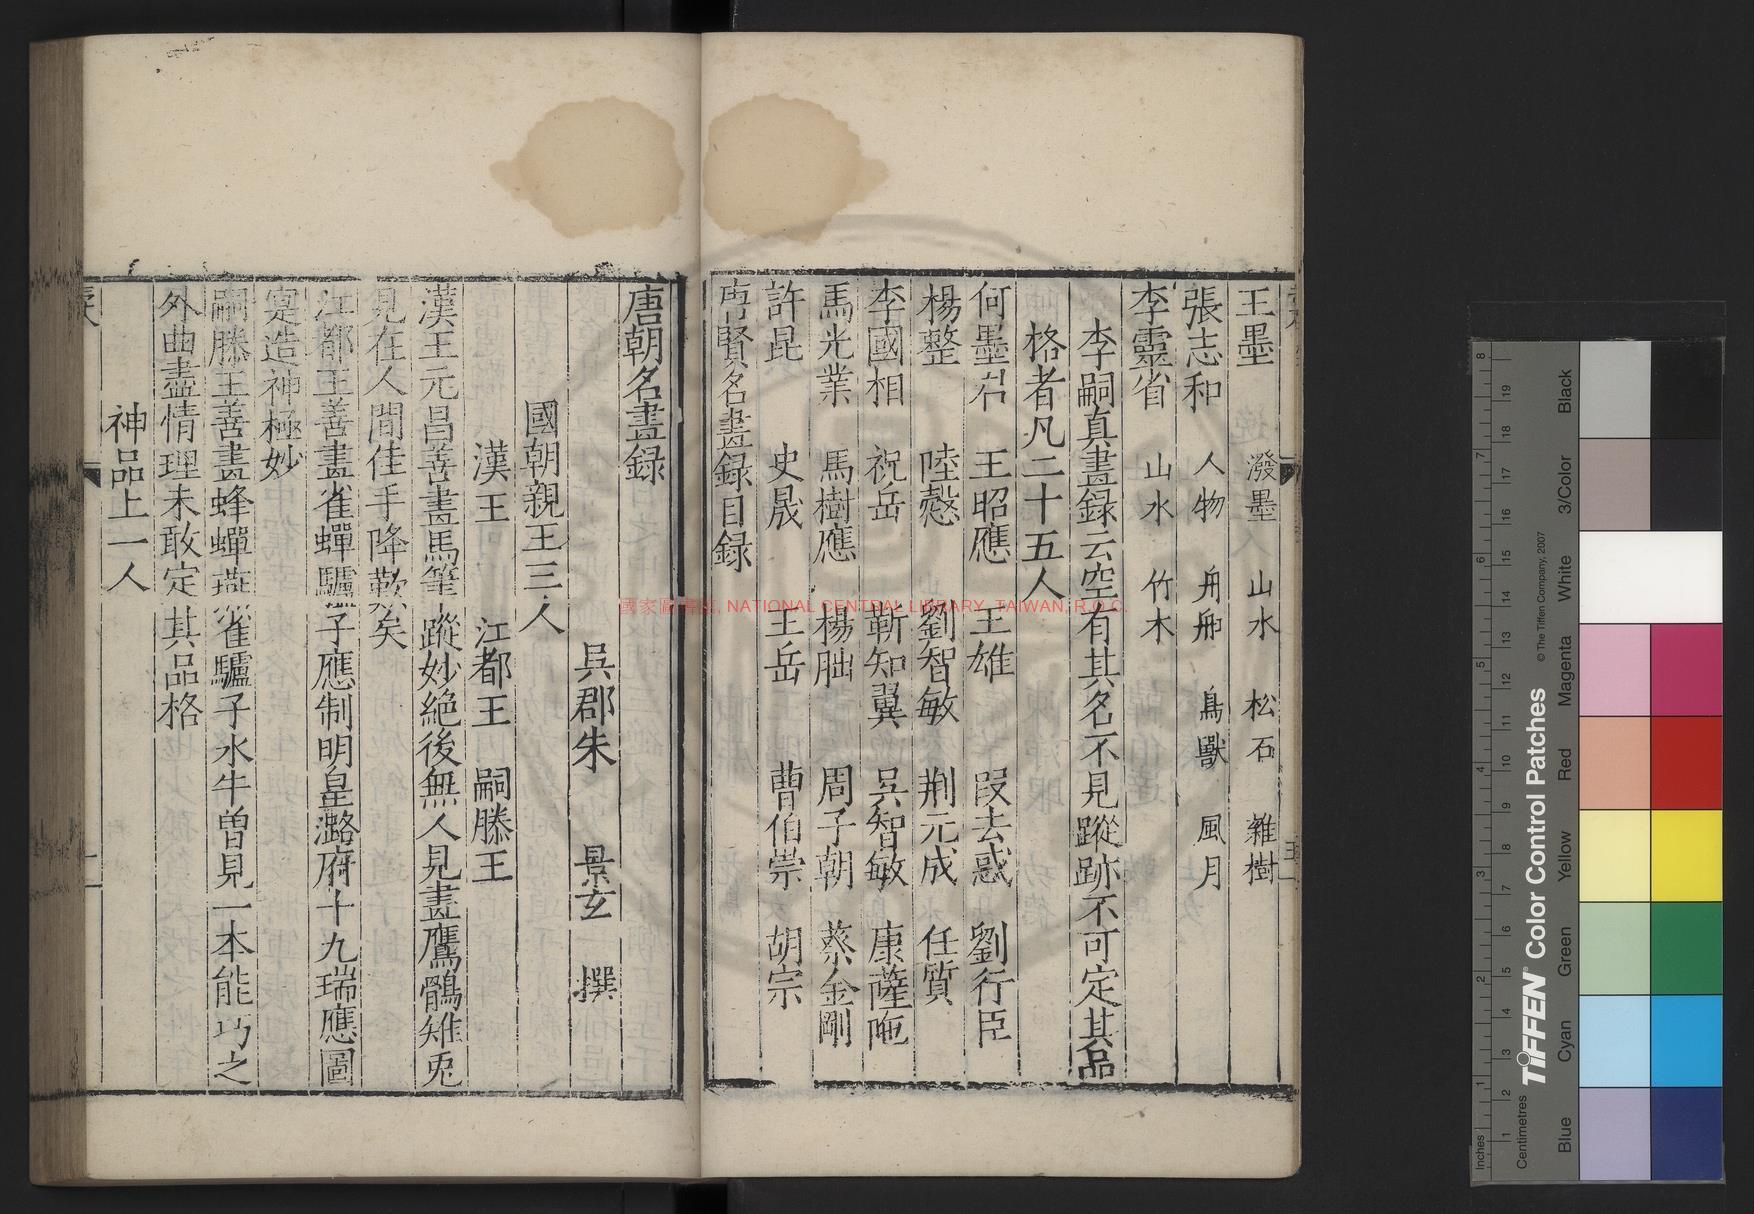 王墨 潑墨 山水 松石 雜樹
張志和 人物 舟船 鳥獸 風月
李靈省 山水 竹木
李嗣真畫録云空有其名不見蹤跡不可定其品
格者凡二十五人
何墨 王昭應 王雄 段去惑 劉行臣
楊整 陸慤 劉智敏 荆元成 任質
李國相 祝岳 靳知翼 吳智敏 康薩陁
馬光業 馬樹應 楊朏 周子朝 蔡金剛
許昆 史晸 王岳 曹伯崇 胡宗
唐賢名畫録目録
唐朝名畫録
吳郡朱 景玄 撰
國朝親王三人
漢王 江都王 嗣滕王
漢王元昌善畫馬筆蹤妙絶後無人見畫鷹鶻雉兎
見在人間佳手降歎矣
江都王善畫雀蟬驢子應制明皇潞府十九瑞應圖
寔造神極妙
嗣滕王善畫蜂蟬燕雀驢子水牛曽見一本能巧之
外曲盡情理未敢定其品格
神品上一人
國家圖書館, NATIONAL CENTRAL LIBRARY, TAIWAN, R.O.C.
Inches
Centimetres
TIFFEN® Color Control Patches
© The Tiffen Company, 2007
Blue
Cyan
Green
Yellow
Red
Magenta
White
3/Color
Black